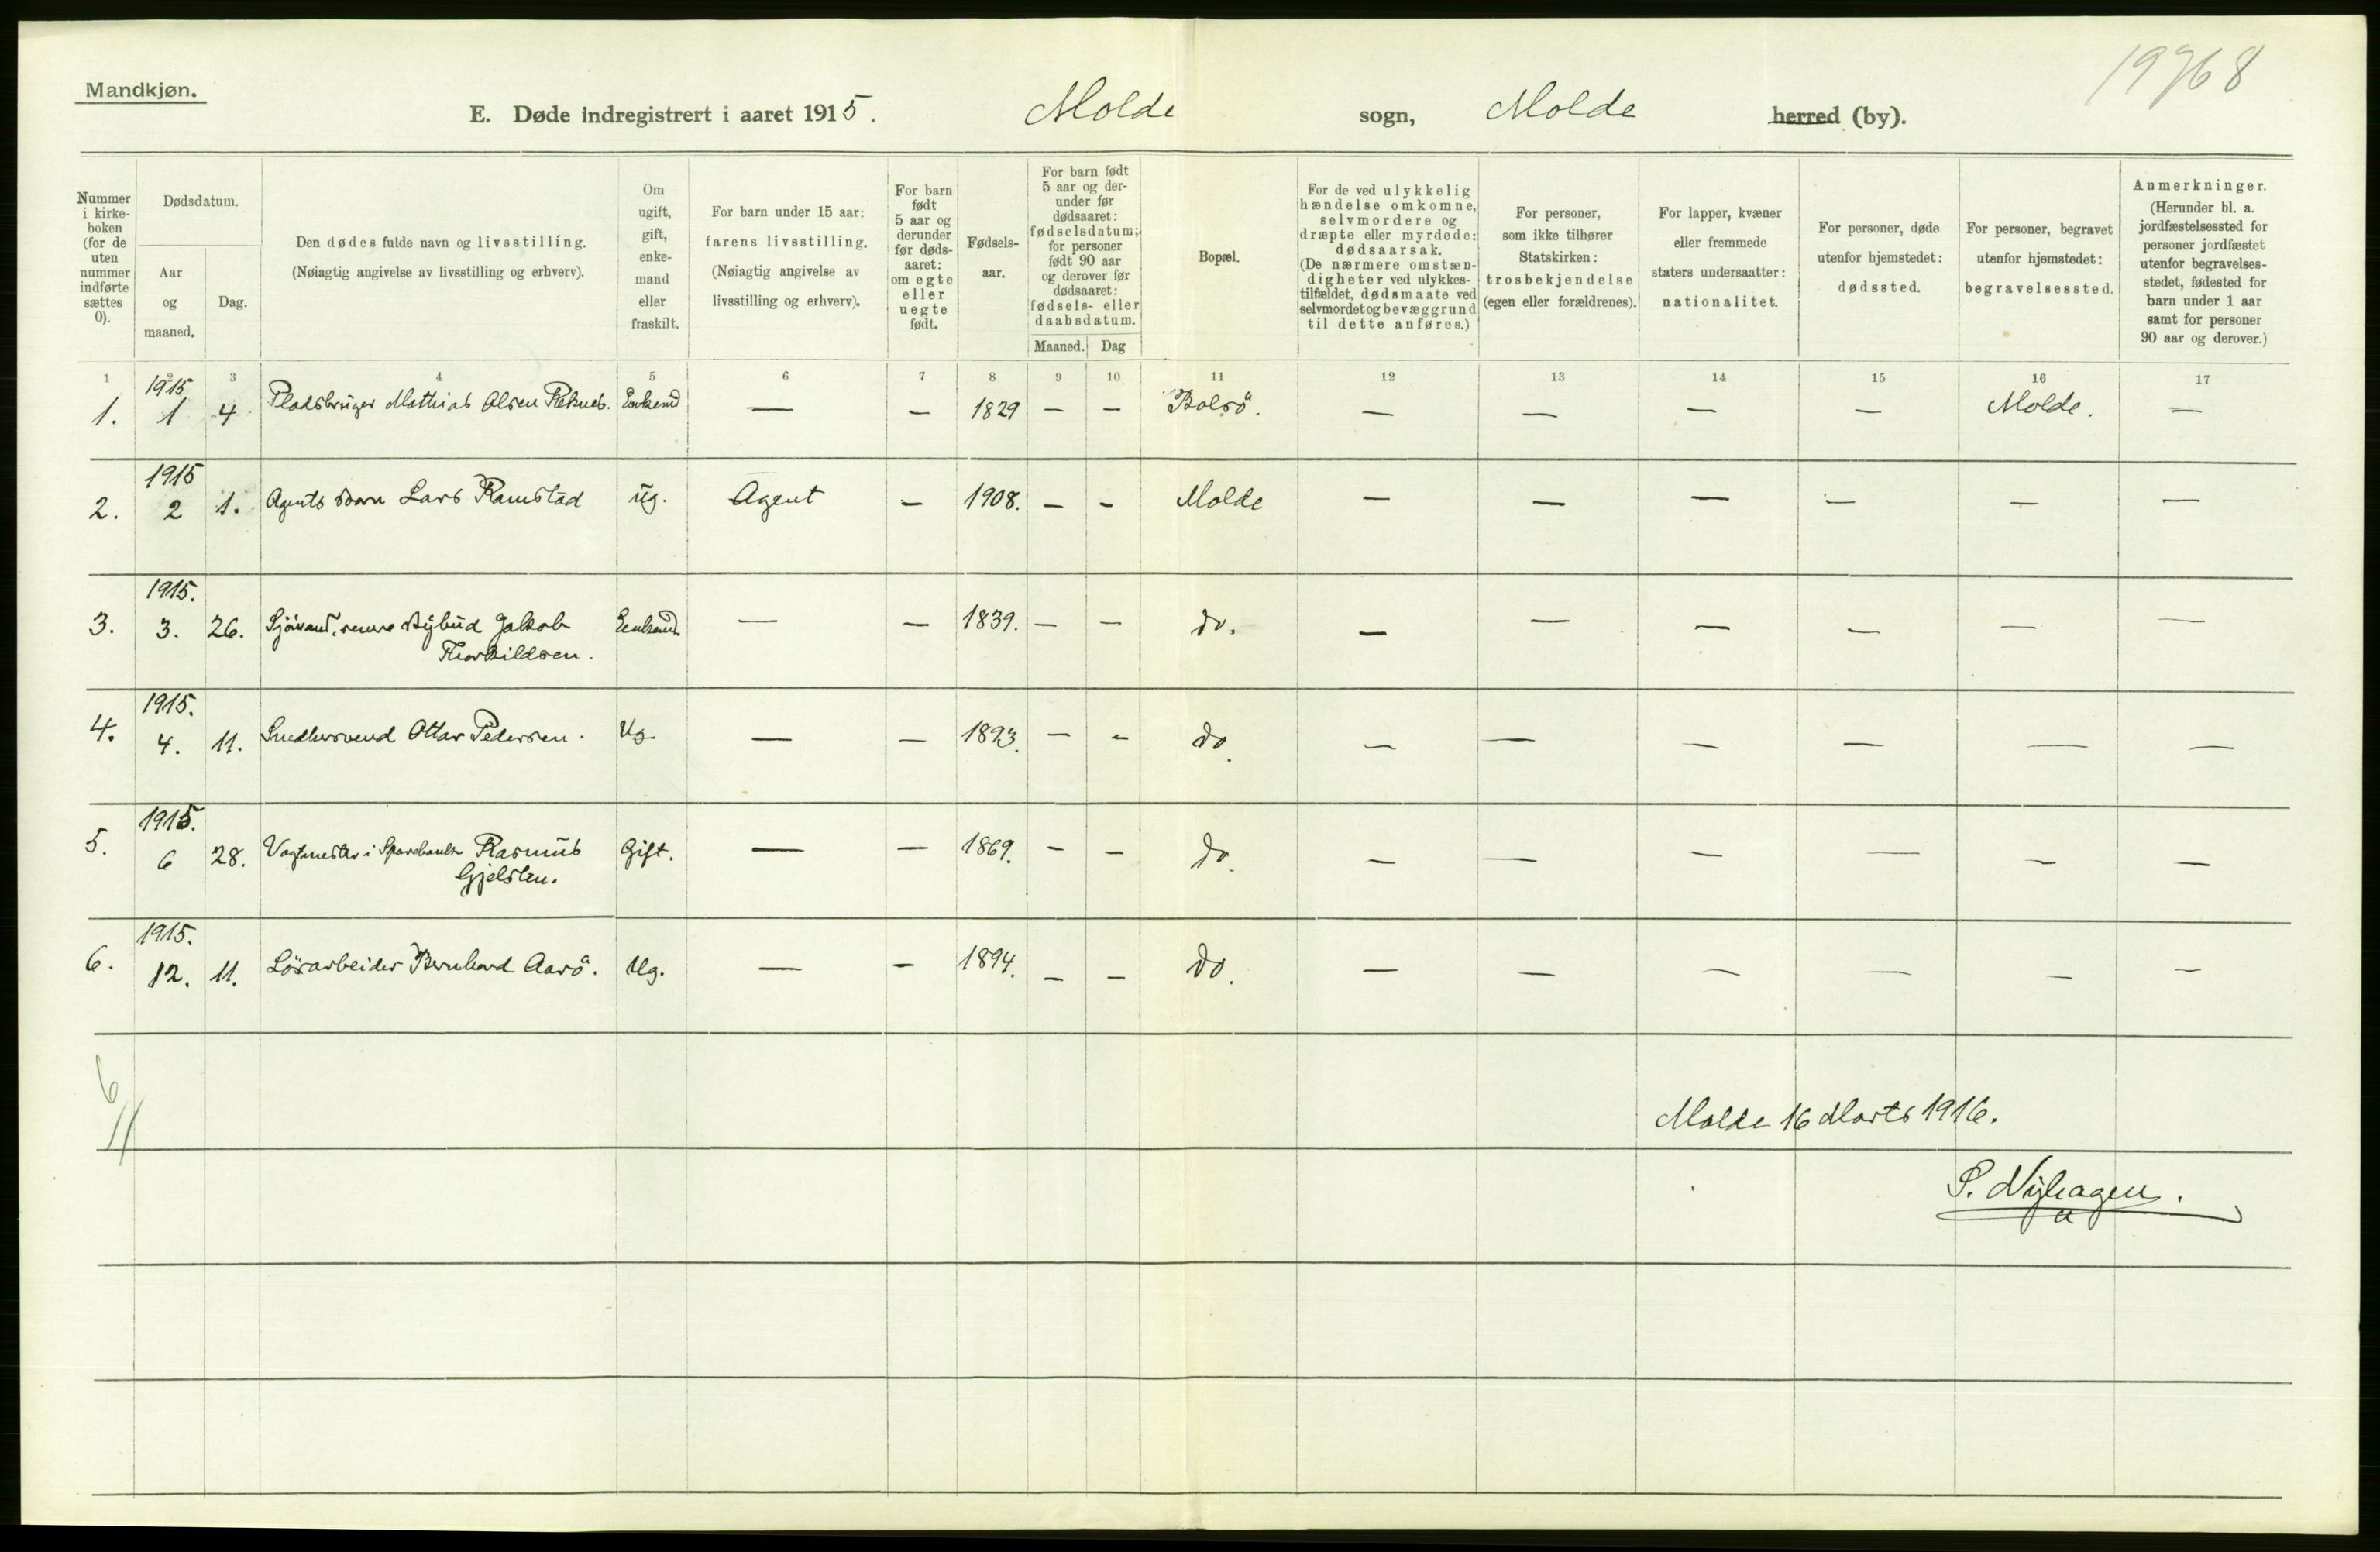 Mandkjøn.
19768
E. Døde indregistrert i aaret 1915. Molde sogn, Molde herred (by).
Nummer i kirke- boken (for de uten nummer indførte sættes 0).
Dødsdatum.
Aar og maaned.
Dag.
Den dødes fulde navn og livsstilling.
(Nøiagtig angivelse av livsstilling og erhverv).
Om ugift, gift, enke- mand eller fraskilt.
For barn under 15 aar:
farens livsstilling.
(Nøiagtig angivelse av
livsstilling og erhverv).
For barn født 5 aar og derunder før døds- aaret: om egte eller uegte født.
Fødsels- aar.
For barn født 5 aar og der- under før dødsaaret: fødselsdatum; for personer født 90 aar og derover før dødsaaret: fødsels- eller daabsdatum.
Maaned. Dag
Bopæl.
For de ved ulykkelig hændelse omkomne, selvmordere og dræpte eller myrdede: dødsaarsak. (De nærmere omstæn- digheter ved ulykkes- tilfældet, dødsmaate ved selvmordet og bevæggrund til dette anføres.)
For personer, som ikke tilhører Statskirken: trosbekjendelse (egen eller forældrenes).
For lapper, kvæner eller fremmede staters undersaatter: nationalitet.
For personer, døde utenfor hjemstedet: dødssted.
For personer, begravet utenfor hjemstedet: begravelsessted.
Anmerkninger. (Herunder bl. a. jordfæstelsessted for personer jordfæstet utenfor begravelses- stedet, fødested for barn under 1 aar samt for personer 90 aar og derover.)
1 2 3 4 5 6 7 8 9 10 11 12 13 14 15 16 17
1915
1. 1 4 Pladsbruger Mathias Olsen Reknes. Enkemd — — 1829 — — Bolsö. — — — — Molde. —
1915
2. 2 1. Agents Barn Lars Ramstad ug. Agent — 1908. — — Molde — — — — — —
1915.
3. 3. 26. Bybud Jakob Enkemd. — — 1839. — — do. — — — — — —
Thorkildsen.
1915.
4. 4. 11. Snedkersvend Ottar Pedersen. Ug. — — 1893. — — do. — — — — — —
1915.
5. 6 28. Vagtmester i Sparebank Rasmus Gift. — — 1869. — — do. — — — — — —
Gjelsten.
1915.
6. 12. 11. Lösarbeider Bernhard Aarö. Ug. — — 1894. — — do. — — — — — —
6
Molde 16 Marts 1916.
S. Nyhagen.